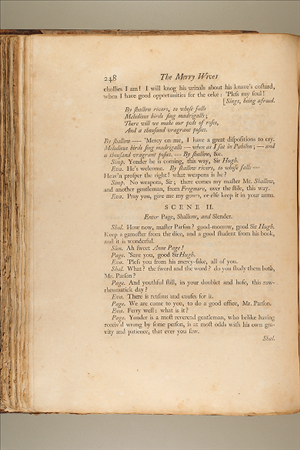 248 The Merry Wives
chollies I am! I will knog his urinals about his knave's costard,
when I have good opportunities for the orke: 'Pless my soul!
[Sings, being afraid.
By shallow rivers, to whose falls
Melodious birds sing madrigalls;
There will we make our peds of roses,
And a thousand vragrant posies.
By shallow — 'Mercy on me, I have a great dispositions to cry.
Melodious birds sing madrigalls — when as I sat in Pabilon; — and
a thousand vragrant posies. — By shallow, &c.
Simp. Yonder he is coming, this way, Sir Hugh.
Eva. He's welcome. By shallow rivers, to whose falls —
Heav'n prosper the right! what weapons is he?
Simp. No weapons, Sir; there comes my master Mr. Shallow,
and another gentleman, from Frogmore, over the stile, this way.
Eva. Pray you, give me my gown, or else keep it in your arms.
SCENE II.
Enter Page, Shallow, and Slender.
Shal. How now, master Parson? good-morrow, good Sir Hugh.
Keep a gamester from the dice, and a good student from his book,
and it is wonderful.
Slen. Ah sweet Anne Page!
Page. 'Save you, good Sir Hugh.
Eva. 'Pless you from his mercy-sake, all of you.
Shal. What? the sword and the word? do you study them both,
Mr. Parson?
Page. And youthful still, in your doublet and hose, this raw-
rheumatick day?
Eva. There is reasons and causes for it.
Page. We are come to you, to do a good office, Mr. Parson.
Eva. Ferry well: what is it?
Page. Yonder is a most reverend gentleman, who belike having
receiv'd wrong by some person, is at most odds with his own gra-
vity and patience, that ever you saw.
Shal.